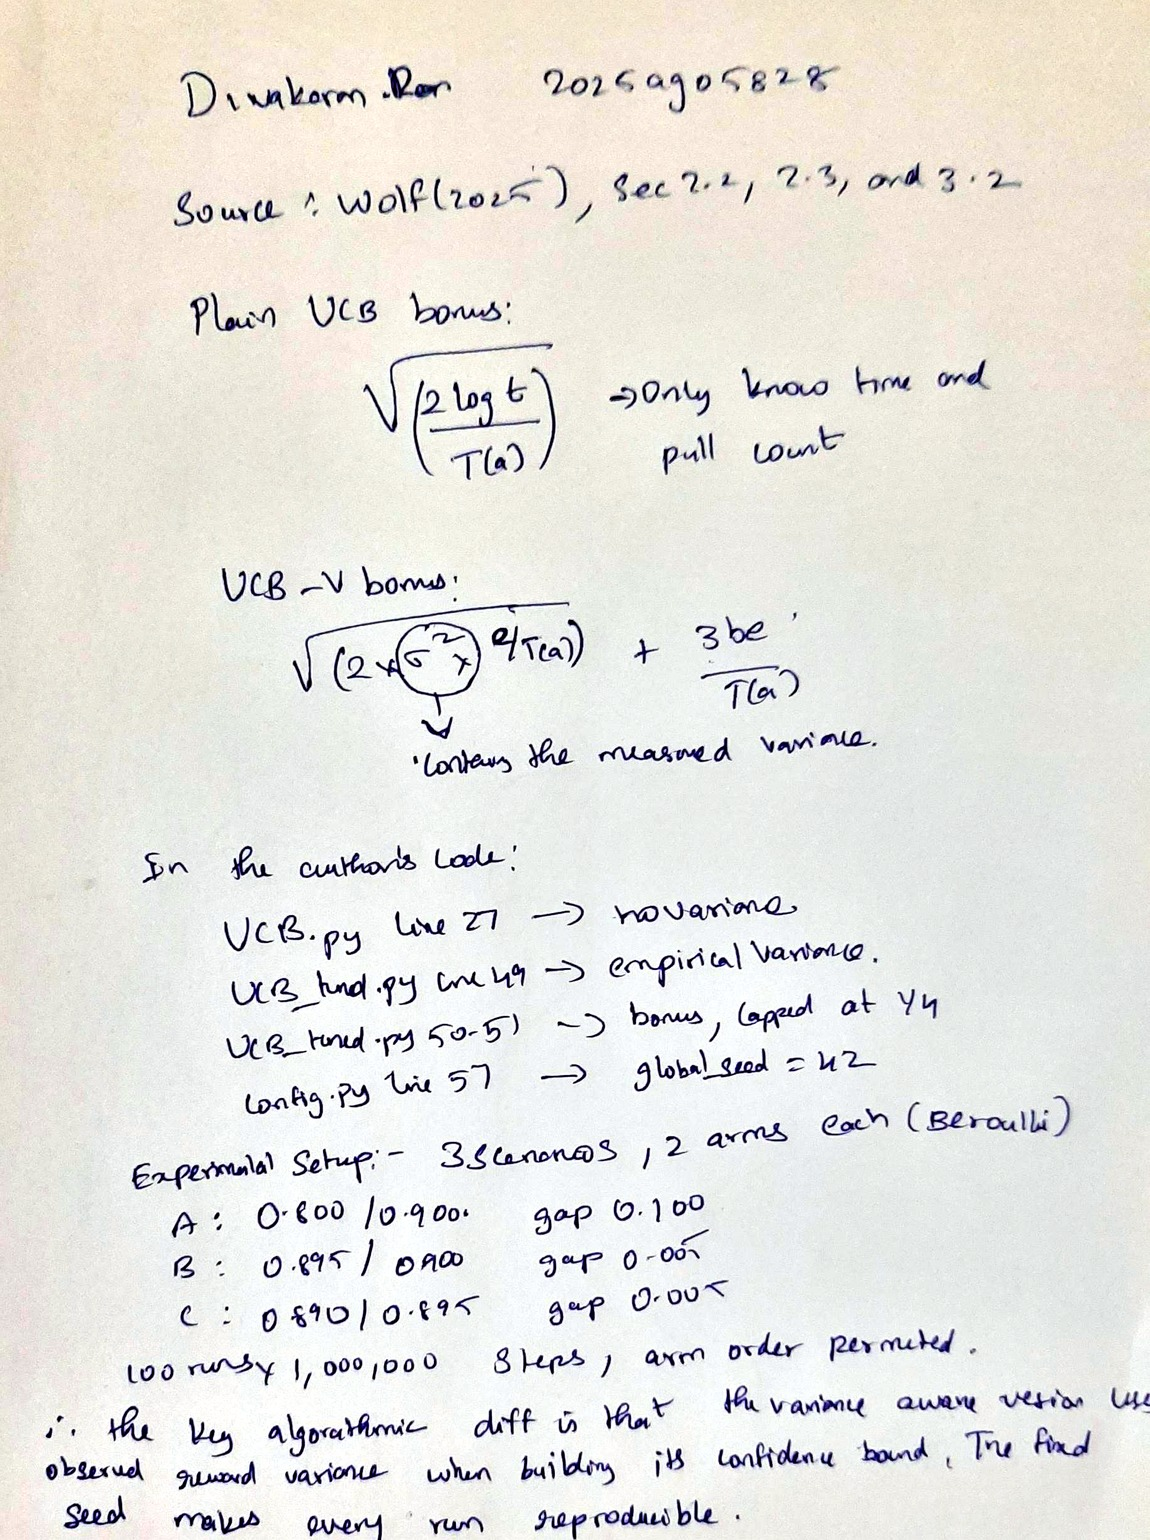 Diwakaran.Ran 2025ag05828
Source : Wolf(2025), Sec 2.2, 2.3, and 3.2
Plain UCB bonus:
√(2 log t / T(a)) → Only know time and
pull count
UCB-V bonus:
√(2 x σ² x e/T(a)) + 3be / T(a)
Contains the measured variance.
In the author's code:
UCB.py line 27 → no variance
UCB_tuned.py line 49 → empirical variance.
UCB_tuned.py 50-51 → bonus, capped at 1/4
config.py line 57 → global_seed = 42
Experimental Setup:- 3 Scenarios, 2 arms each (Beroulli)
A : 0.800 / 0.900. gap 0.100
B : 0.895 / 0.900 gap 0.005
C : 0.890 / 0.895 gap 0.005
100 runs x 1,000,000 Steps, arm order permuted.
∴ the key algorathmic diff is that the variance aware version use
observed reward variance when building its confidence bound, The fixed
seed makes every run reproducible.